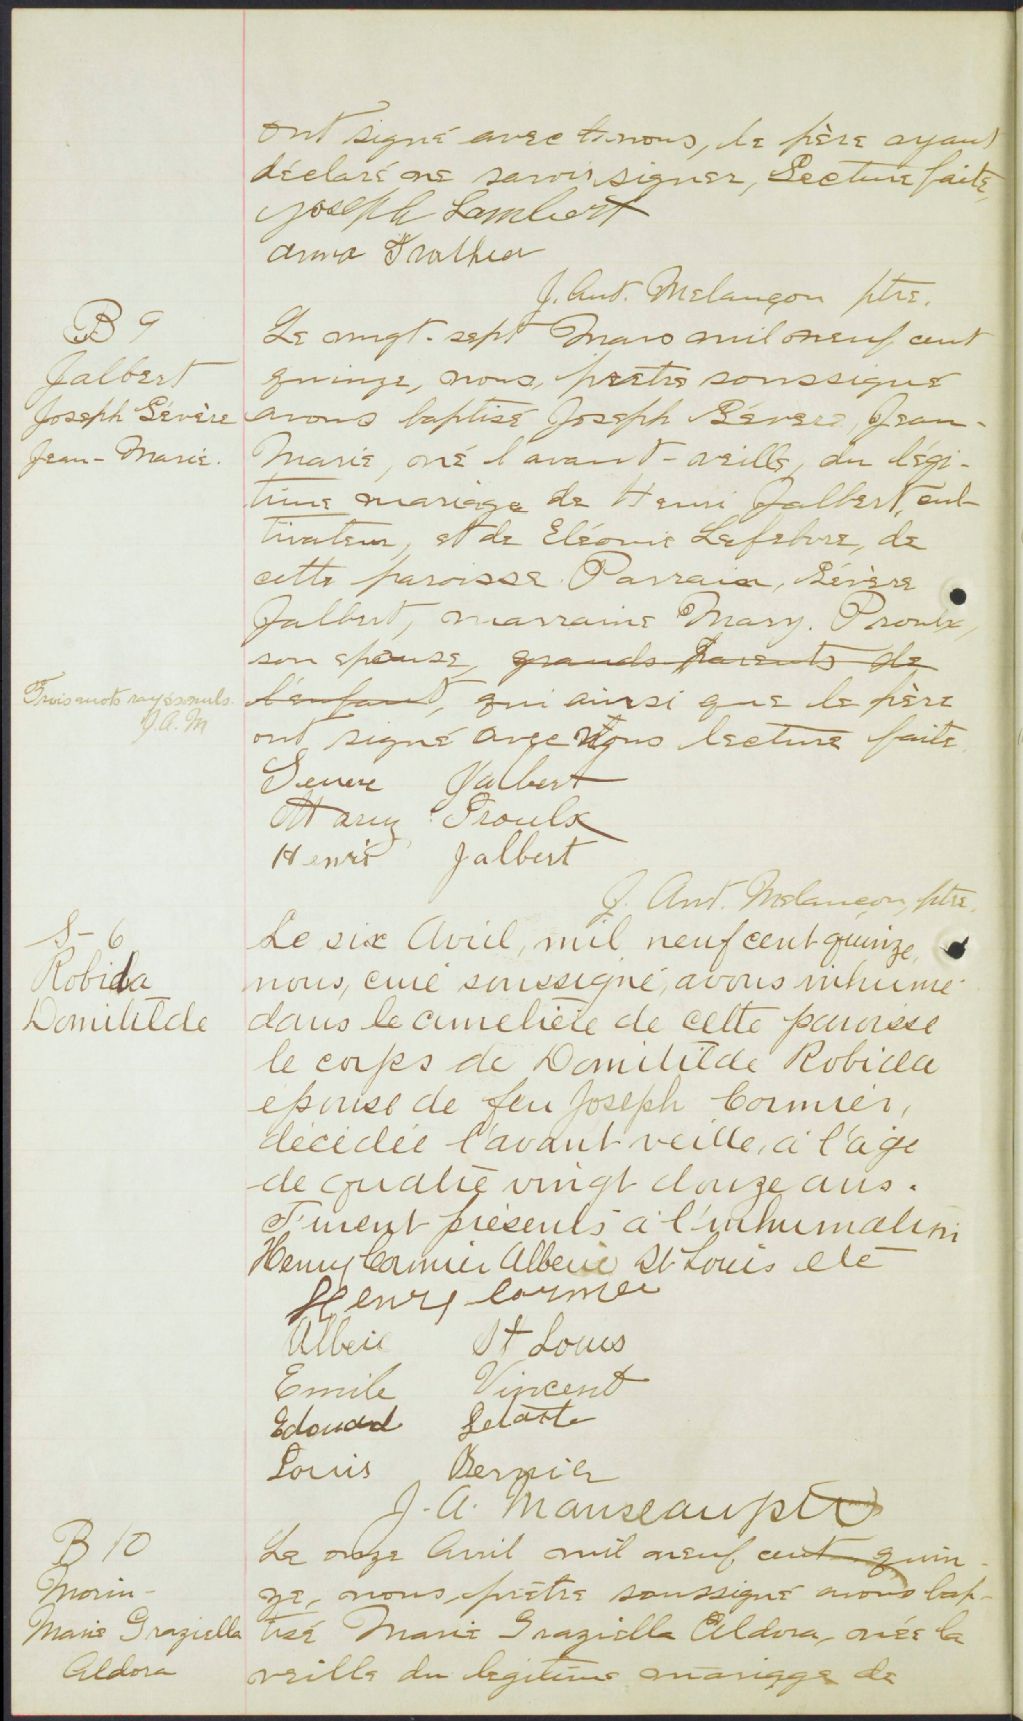 ont signé avec nous, le père ayant
déclaré ne savoir signer, Lecture faite,
Joseph Lambert
anna
J. Ant. Melançon ptre.
B 9
Jalbert
Joseph Sévère
Jean-Marie.
Le vingt-sept Mars mil neuf cent
quinze, nous, prêtre soussigné
avons baptisé Joseph Sévère, Jean-
Marie, né l'avant-veille, du légi-
time mariage de Henri Jalbert, cul-
tivateur, et de Eléonie Lefebvre, de
cette paroisse. Parrain, Sévère
Jalbert, marraine Mary. Proulx,
son epouse, grands parents de
l'enfant, qui ainsi que le père
ont signé avec nous lecture faite.
Trois mots rayés nuls.
J.A.M
Severe Jalbert
Mary Proulx
Henri Jalbert
J. Ant. Melançon, ptre.
S-6
Robida
Domitilde
Le six Avril, mil neuf cent quinze,
nous, curé soussigné, avons inhumé
dans le cimetière de cette paroisse
le corps de Domitilde Robida
épouse de feu Joseph Cormier,
décédée l'avant veille, à l'âge
de quatre vingt douze ans.
Furent présents à l'inhumation
Henry Cormier Alberic St Louis etc
Henry Cormier
Alberic St Louis
Emile Vincent
Edouard
Louis Bernier
J. A. Manseau ptre
B 10
Morin-
Marie Graziella
Aldora
Le onze Avril mil neuf cent quin-
ze, nous, prêtre soussigné avons bap-
tisé Marie Graziella Aldora, née la
veille du legitime mariage de